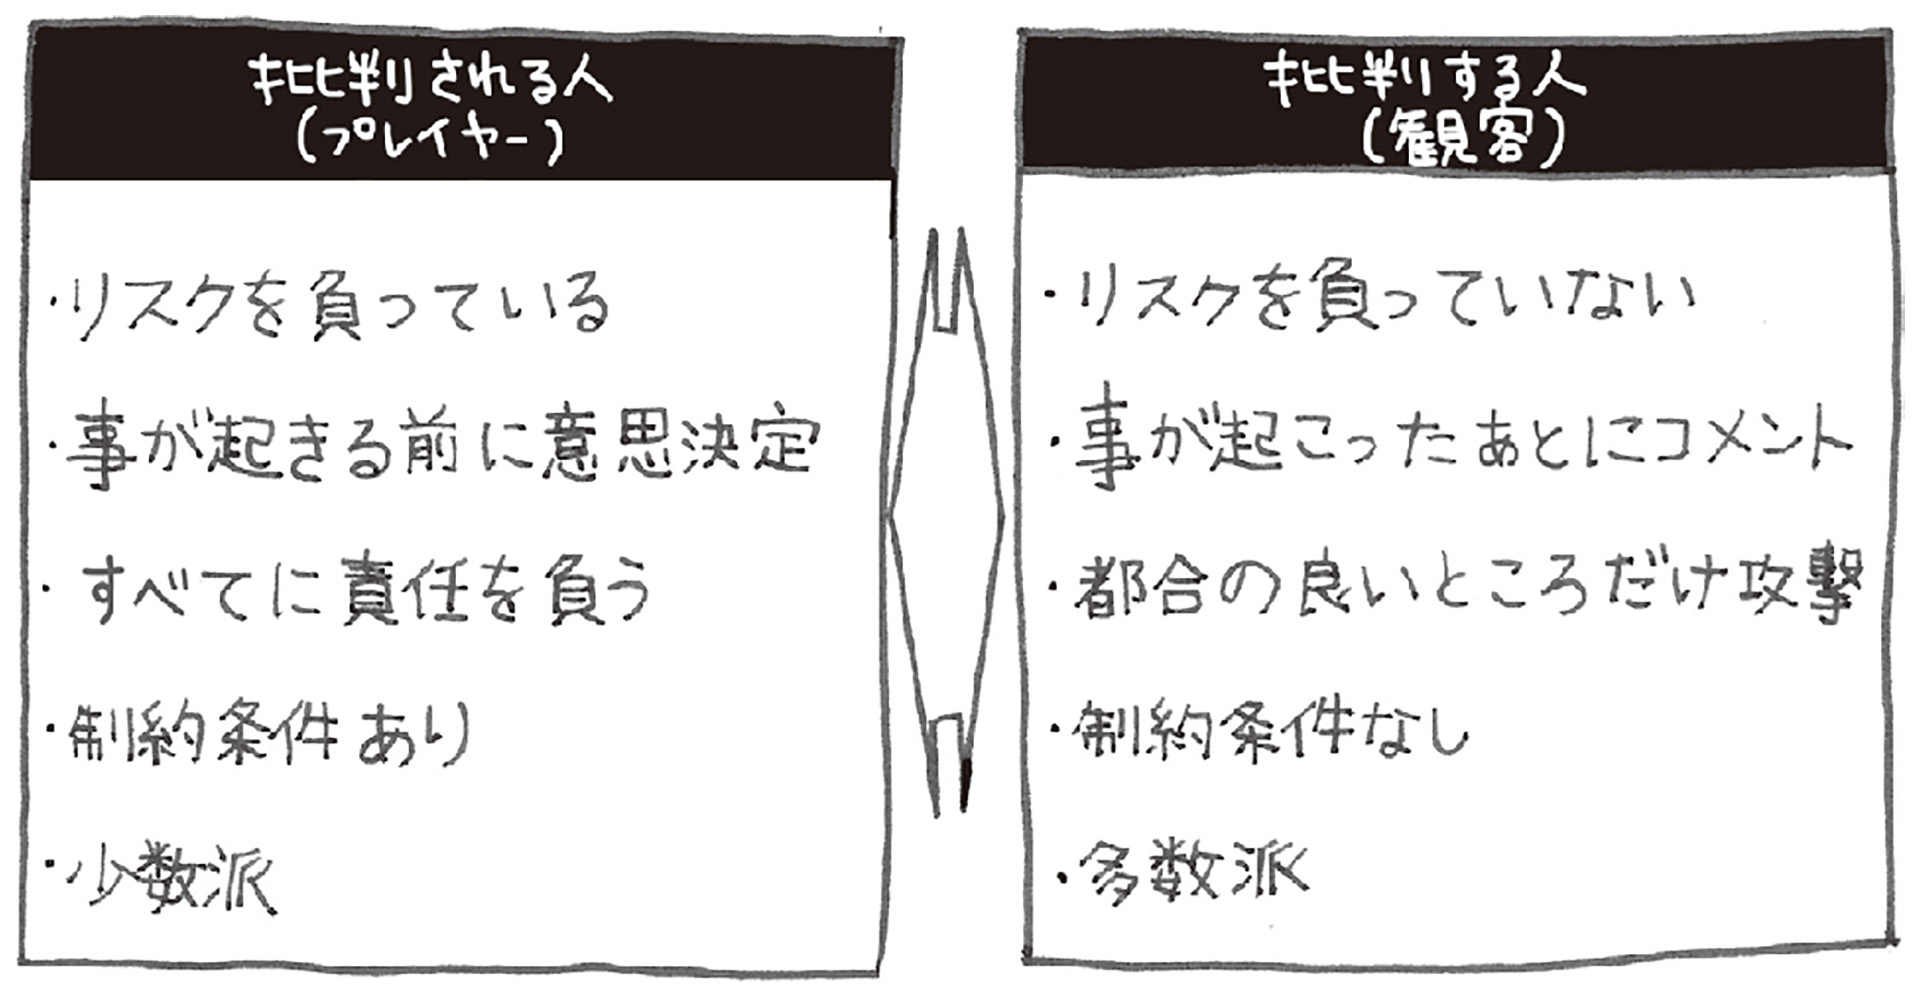 批判される人
(プレイヤー)
・リスクを負っている
・事が起きる前に意思決定
・すべてに責任を負う
・制約条件あり
・少数派
批判する人
(観客)
・リスクを負っていない
・事が起こったあとにコメント
・都合の良いところだけ攻撃
・制約条件なし
・多数派